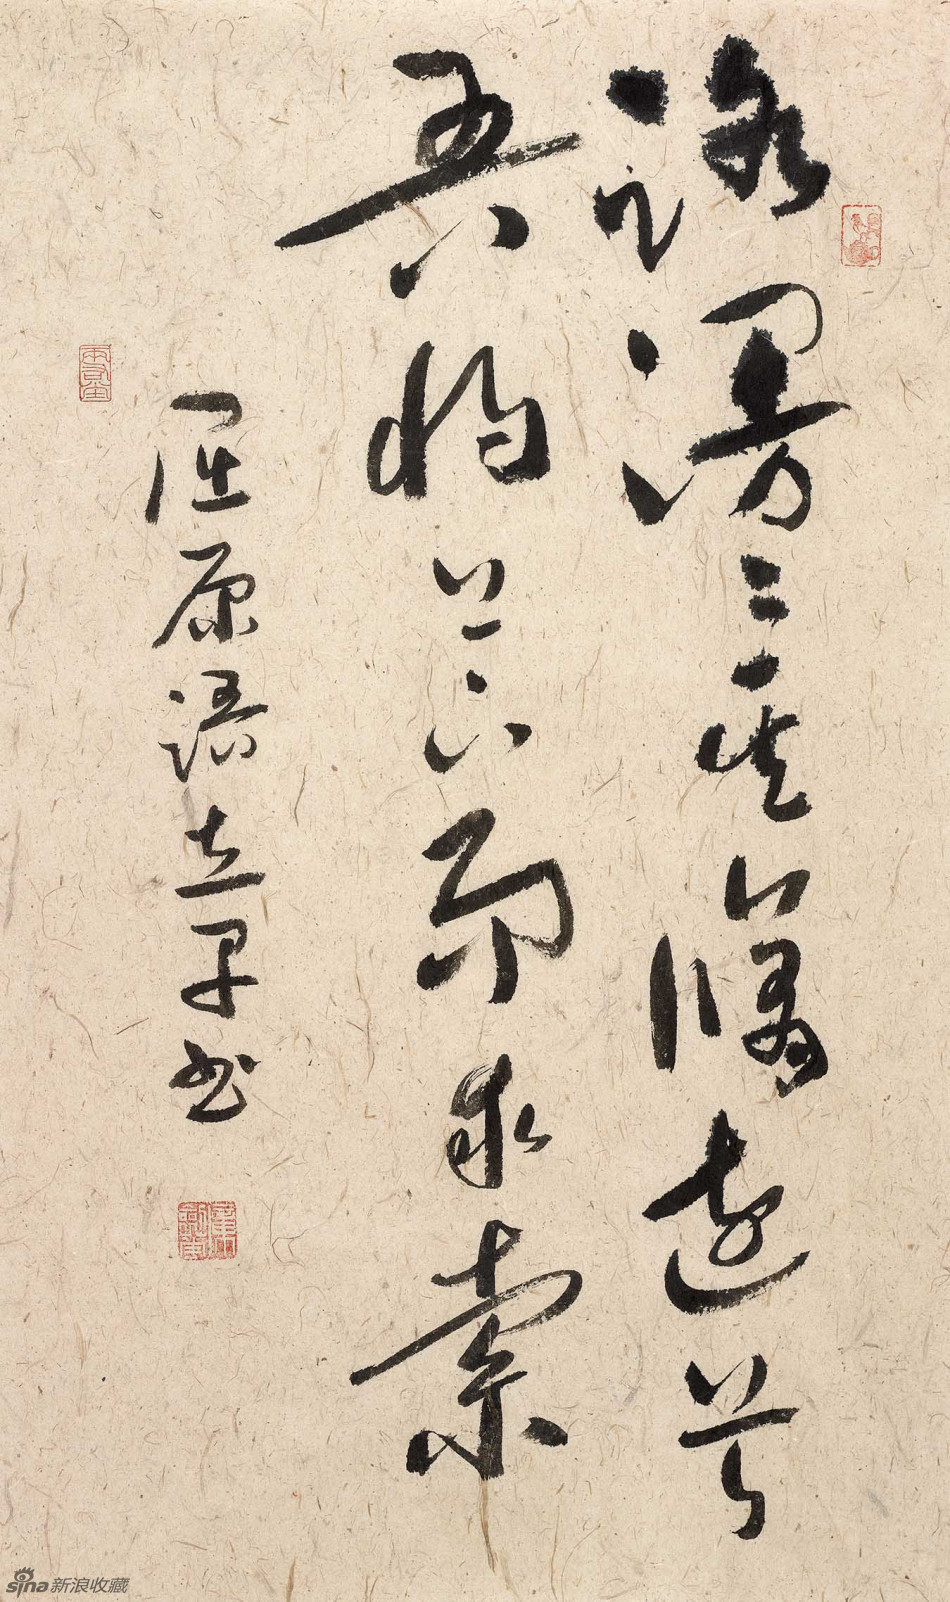 路漫〻其脩遠兮
吾将上下而求索
屈原语立早书
sina新浪收藏